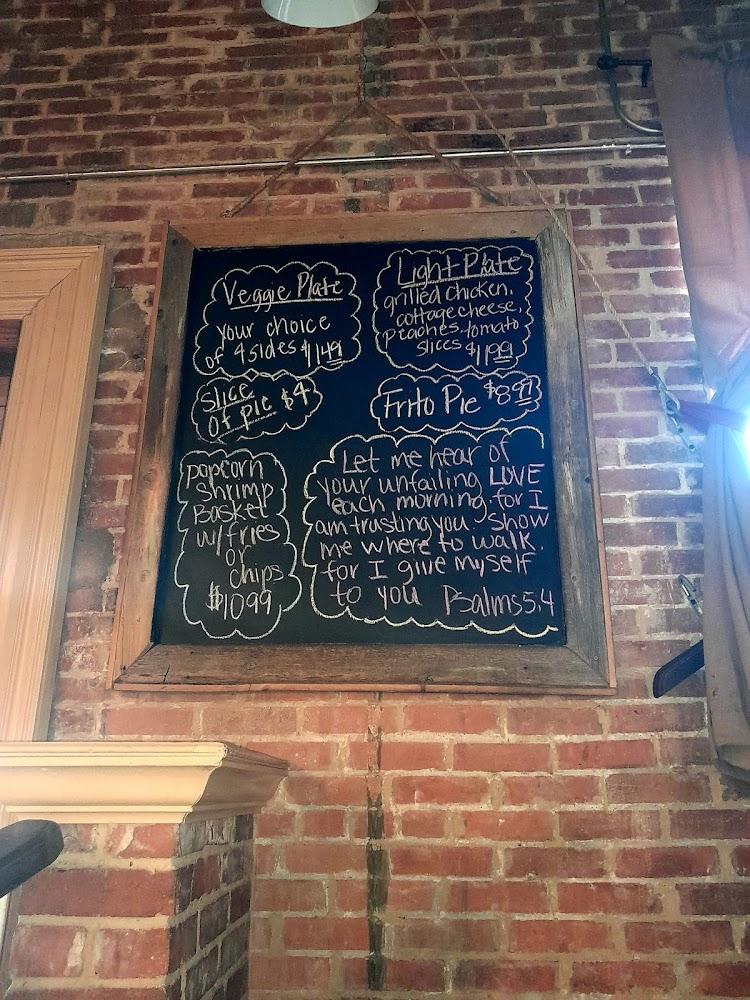 Veggie Plate
your choice
of 4 sides $11.49
Light Plate
grilled chicken,
cottage cheese,
peaches, tomato
slices $11.99
Slice
of pie $4
Frito Pie $8.97
popcorn
Shrimp
Basket
w/fries
or
chips
$10.99
Let me hear of
your unfailing LOVE
each morning, for I
am trusting you. Show
me where to walk.
for I give myself
to you Psalms 5,4